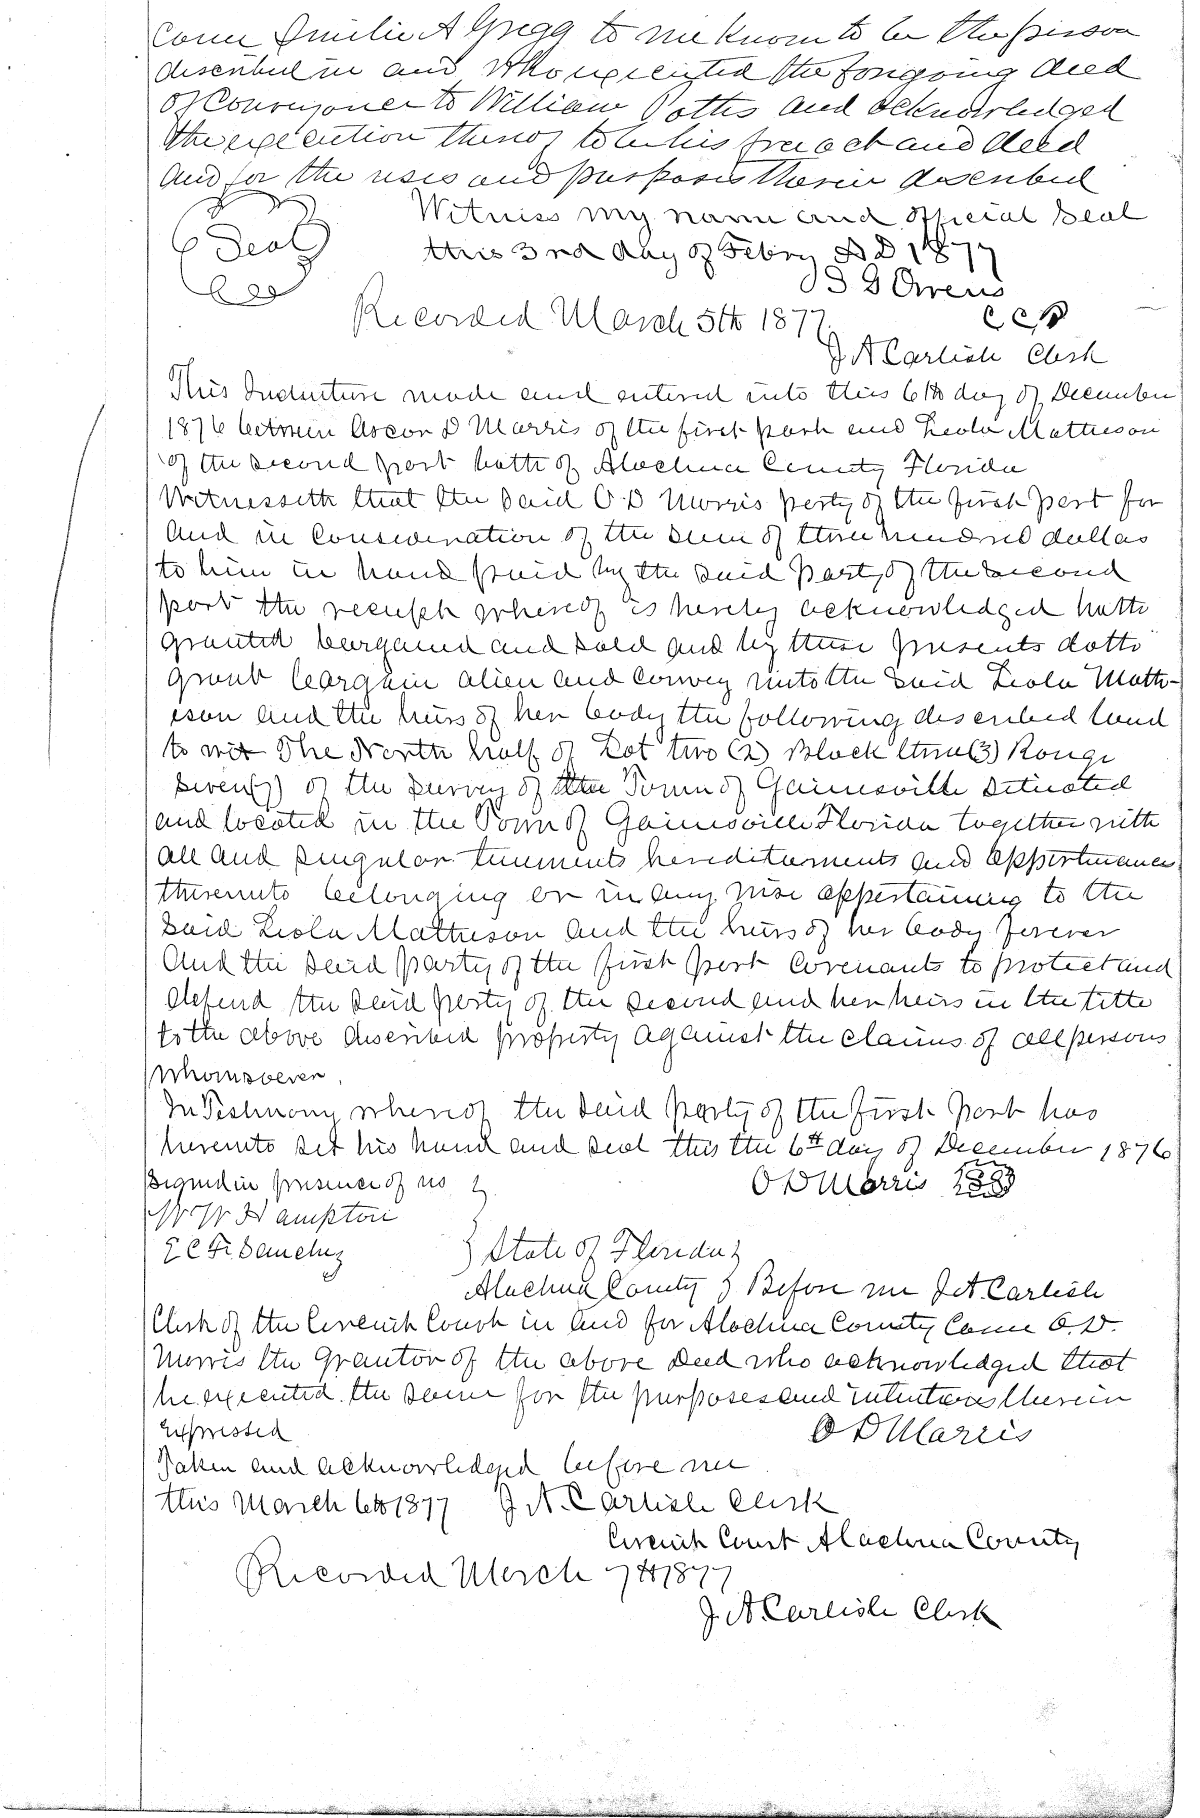 Came Emilie A Gregg to me known to be the person
described in and who executed the foregoing deed
of Conveyance to William Potts and acknowledged
the execution thereof to be his free act and deed
and for the uses and purposes therein described
Witness my name and official seal
Seal
this 3rd day of Febry A D 1877
S G Owens
Recorded March 5th 1877
J A Carlisle Clerk
This Indenture made and entered into this 6th day of December
1876 between Ascor D Marris of the first part and Leola Matheson
of the second part both of Alachua County Florida
Witnesseth that the said O. D Morris party of the first part for
and in Consideration of the sum of three hundred dollas
to him in hand paid by the said party of the second
part the receipt whereof is hereby acknowledged hath
granted bargained and sold and by these presents doth
grant bargain alien and convey unto the said Leola Math-
eson and the heirs of her body the following described land
to wit The North half of Lot two (2) Block three (3) Range
seven (7) of the survey of the Town of Gainesville situated
and located in the Town of Gainesville Florida together with
all and singular tenements hereditaments and appertenances
thereunto belonging or in any wise appertaining to the
said Leola Matheson and the heirs of her body forever
And the said party of the first part Covenants to protect and
defend the said party of the second and her heirs in the title
to the above described property against the claims of all persons
whomsoever.
In Testimony whereof the said party of the first part has
hereunto set his hand and seal this the 6th day of December 1876
Signed in presence of us
O D Marris
W W Hampton
E C F. Sanchez
State of Florida
Alachua County } Before me J. A. Carlisle
Clerk of the Circuit Court in and for Alachua County Came O. D.
Morris the Grantor of the above Deed who acknowledged that
he executed the same for the purposes and intentions therein
Expressed
O D Marris
Taken and acknowledged before me
this March 6th 1877 J. A. Carlisle Clerk
Circuit Court Alachua County
Recorded March 7th 1877
J. A. Carlisle Clerk